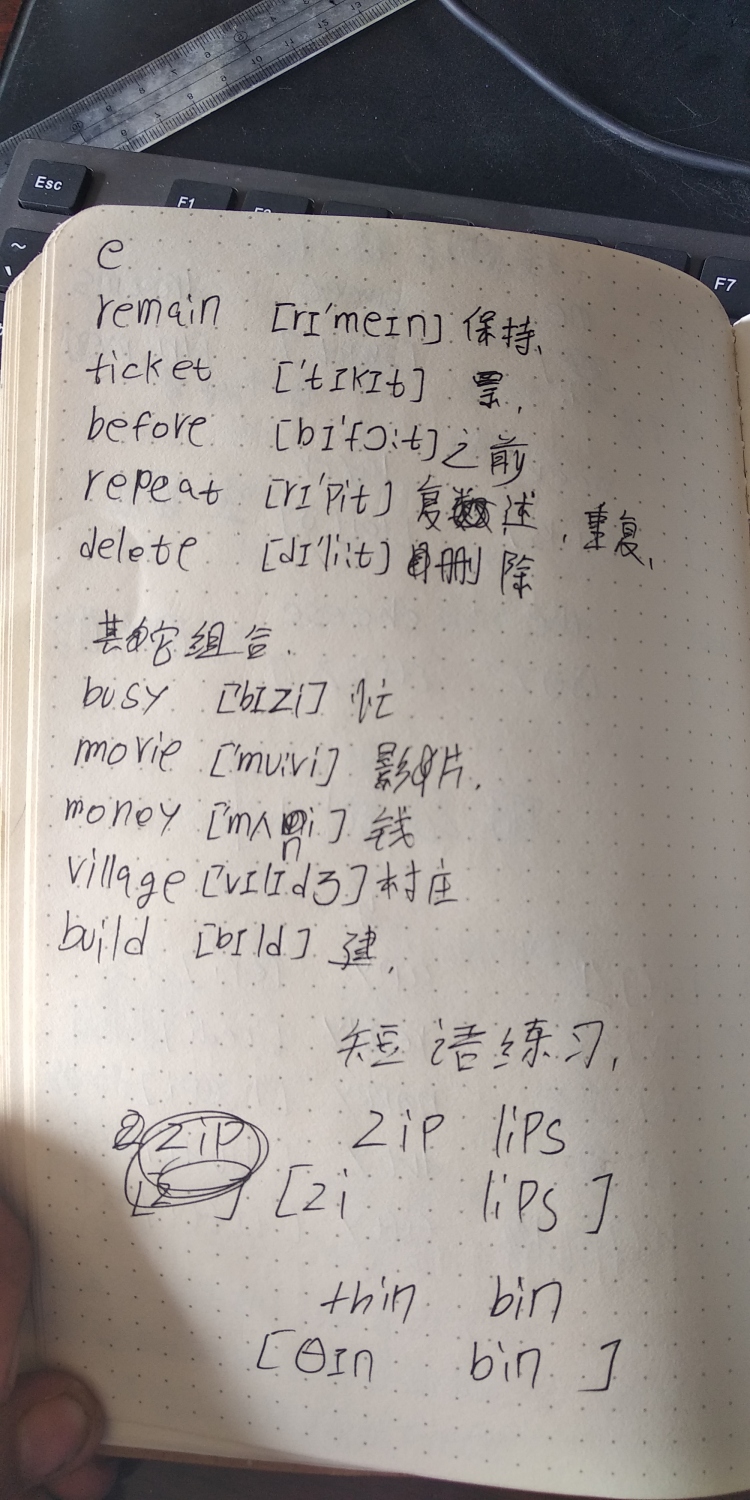 Esc
F1
F7
e
remain [rɪ'meɪn] 保持、
ticket ['tɪkɪt] 票,
before [bɪ'fɔ:t] 之前
repeat [rɪ'pit] 复述,重复、
delete [dɪ'li:t] 删除
其它组合.
busy [bɪzi] 忙
movie ['mu:vi] 影片.
money ['mʌni] 钱
village [vɪlɪdʒ] 村庄
build [bɪld] 建.
短语练习,
zip zip lips
[zi lips]
thin bin
[θɪn bin]